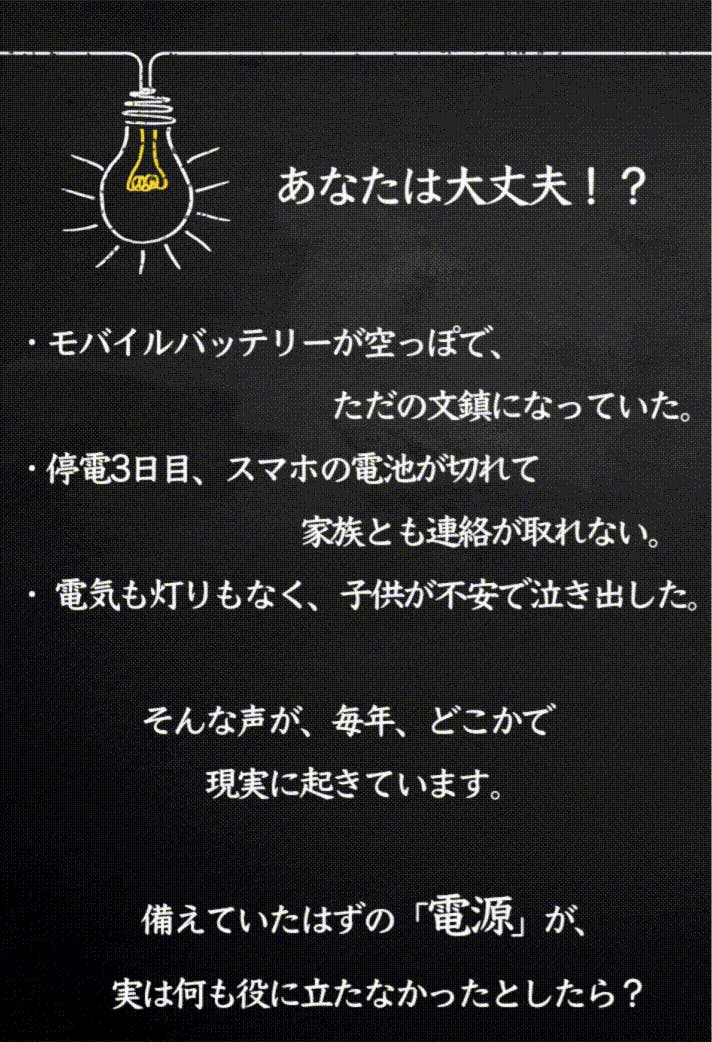 あなたは大丈夫！？
・モバイルバッテリーが空っぽで、
ただの文鎮になっていた。
・停電3日目、スマホの電池が切れて
家族とも連絡が取れない。
・ 電気も灯りもなく、子供が不安で泣き出した。
そんな声が、毎年、どこかで
現実に起きています。
備えていたはずの「電源」が、
実は何も役に立たなかったとしたら？